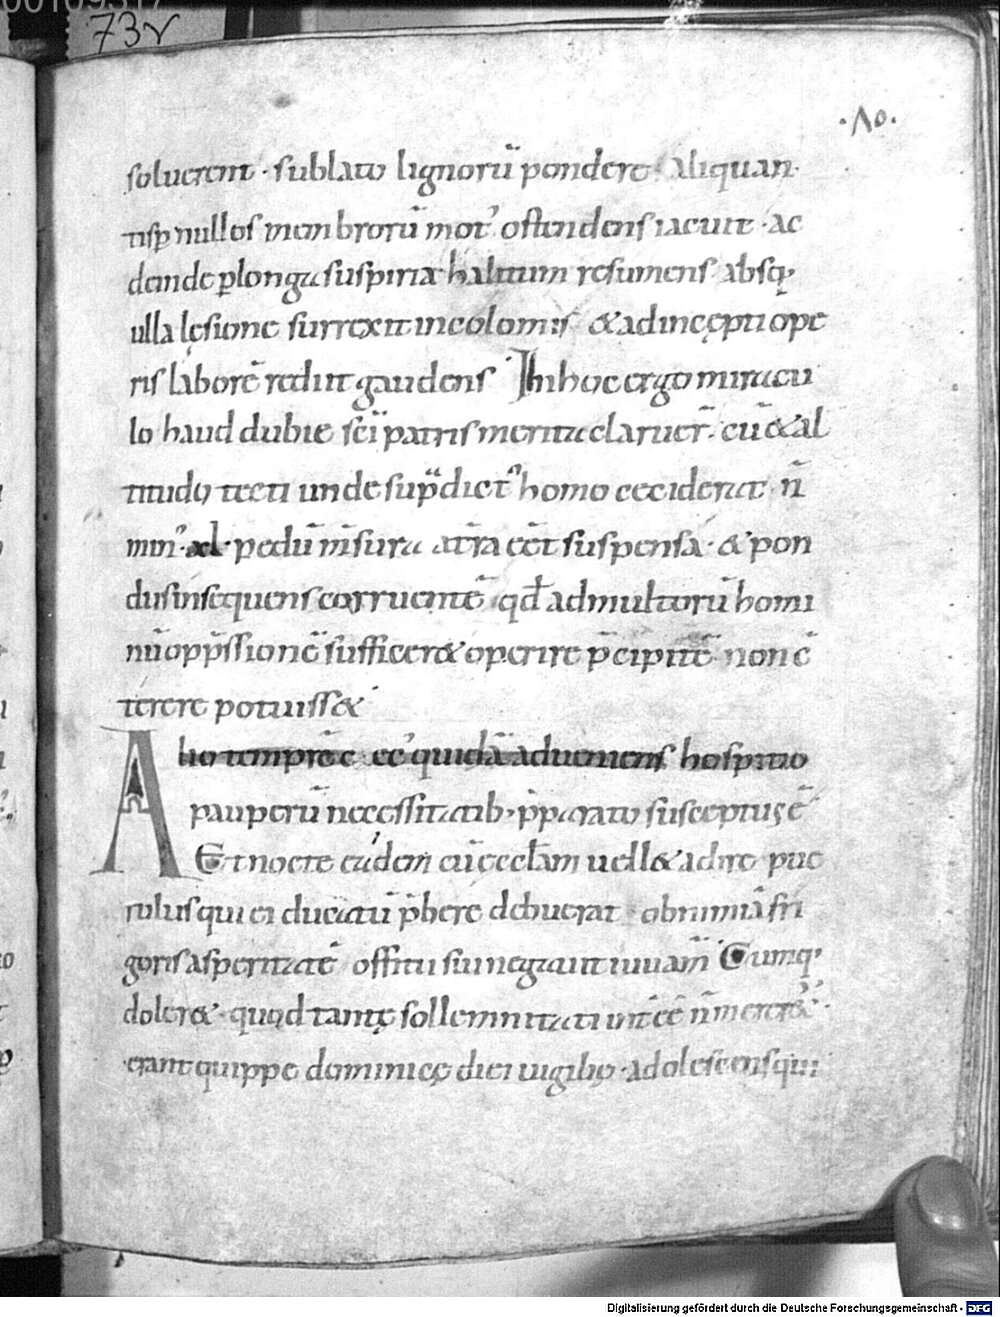 73v
·Λo·
soluerent · sublato lignorū pondere aliquan
tisp nullos menbrorū mot᾽ ostendens iacuit · ac
deinde plonga suspiria halitum resumens absq;
ulla lęsione surrexit incolomis &ad incępti ope
ris laborē redut gaudens · In hoc ergo miracu
lo haud dubie sc̄i patris merita claruer̄ · cū &al
titudo tecti unde sup̄dict᾽ homo ceciderat · n̄
min᾽ · xl · pedū m̄sura a tr̄a eēt suspensa · & pon
dus insequens corruentē qd̄ ad multorū homi
nū opp̄ssionē sufficer& operire p̄cipitē non c̄
terere potuiss& ·
Alio tempr̄e c ec᾽ quidā adueniens hospitio
pauperū necessitatib; p̄parato susceptus ē
Et nocte eadem cū ęcclām uell& adire pue
rulus qui ei ducatū p̄bere debuerat obnimiā fri
goris asperitatē offitii sui negauit iuuam̄ Cumq;
doler& · quod tantę sollemnitati int̄eē n̄ merer& ·
erant quippe dominicę diei uigilię · adolescens qui
Digitalisierung gefördert durch die Deutsche Forschungsgemeinschaft - DFG